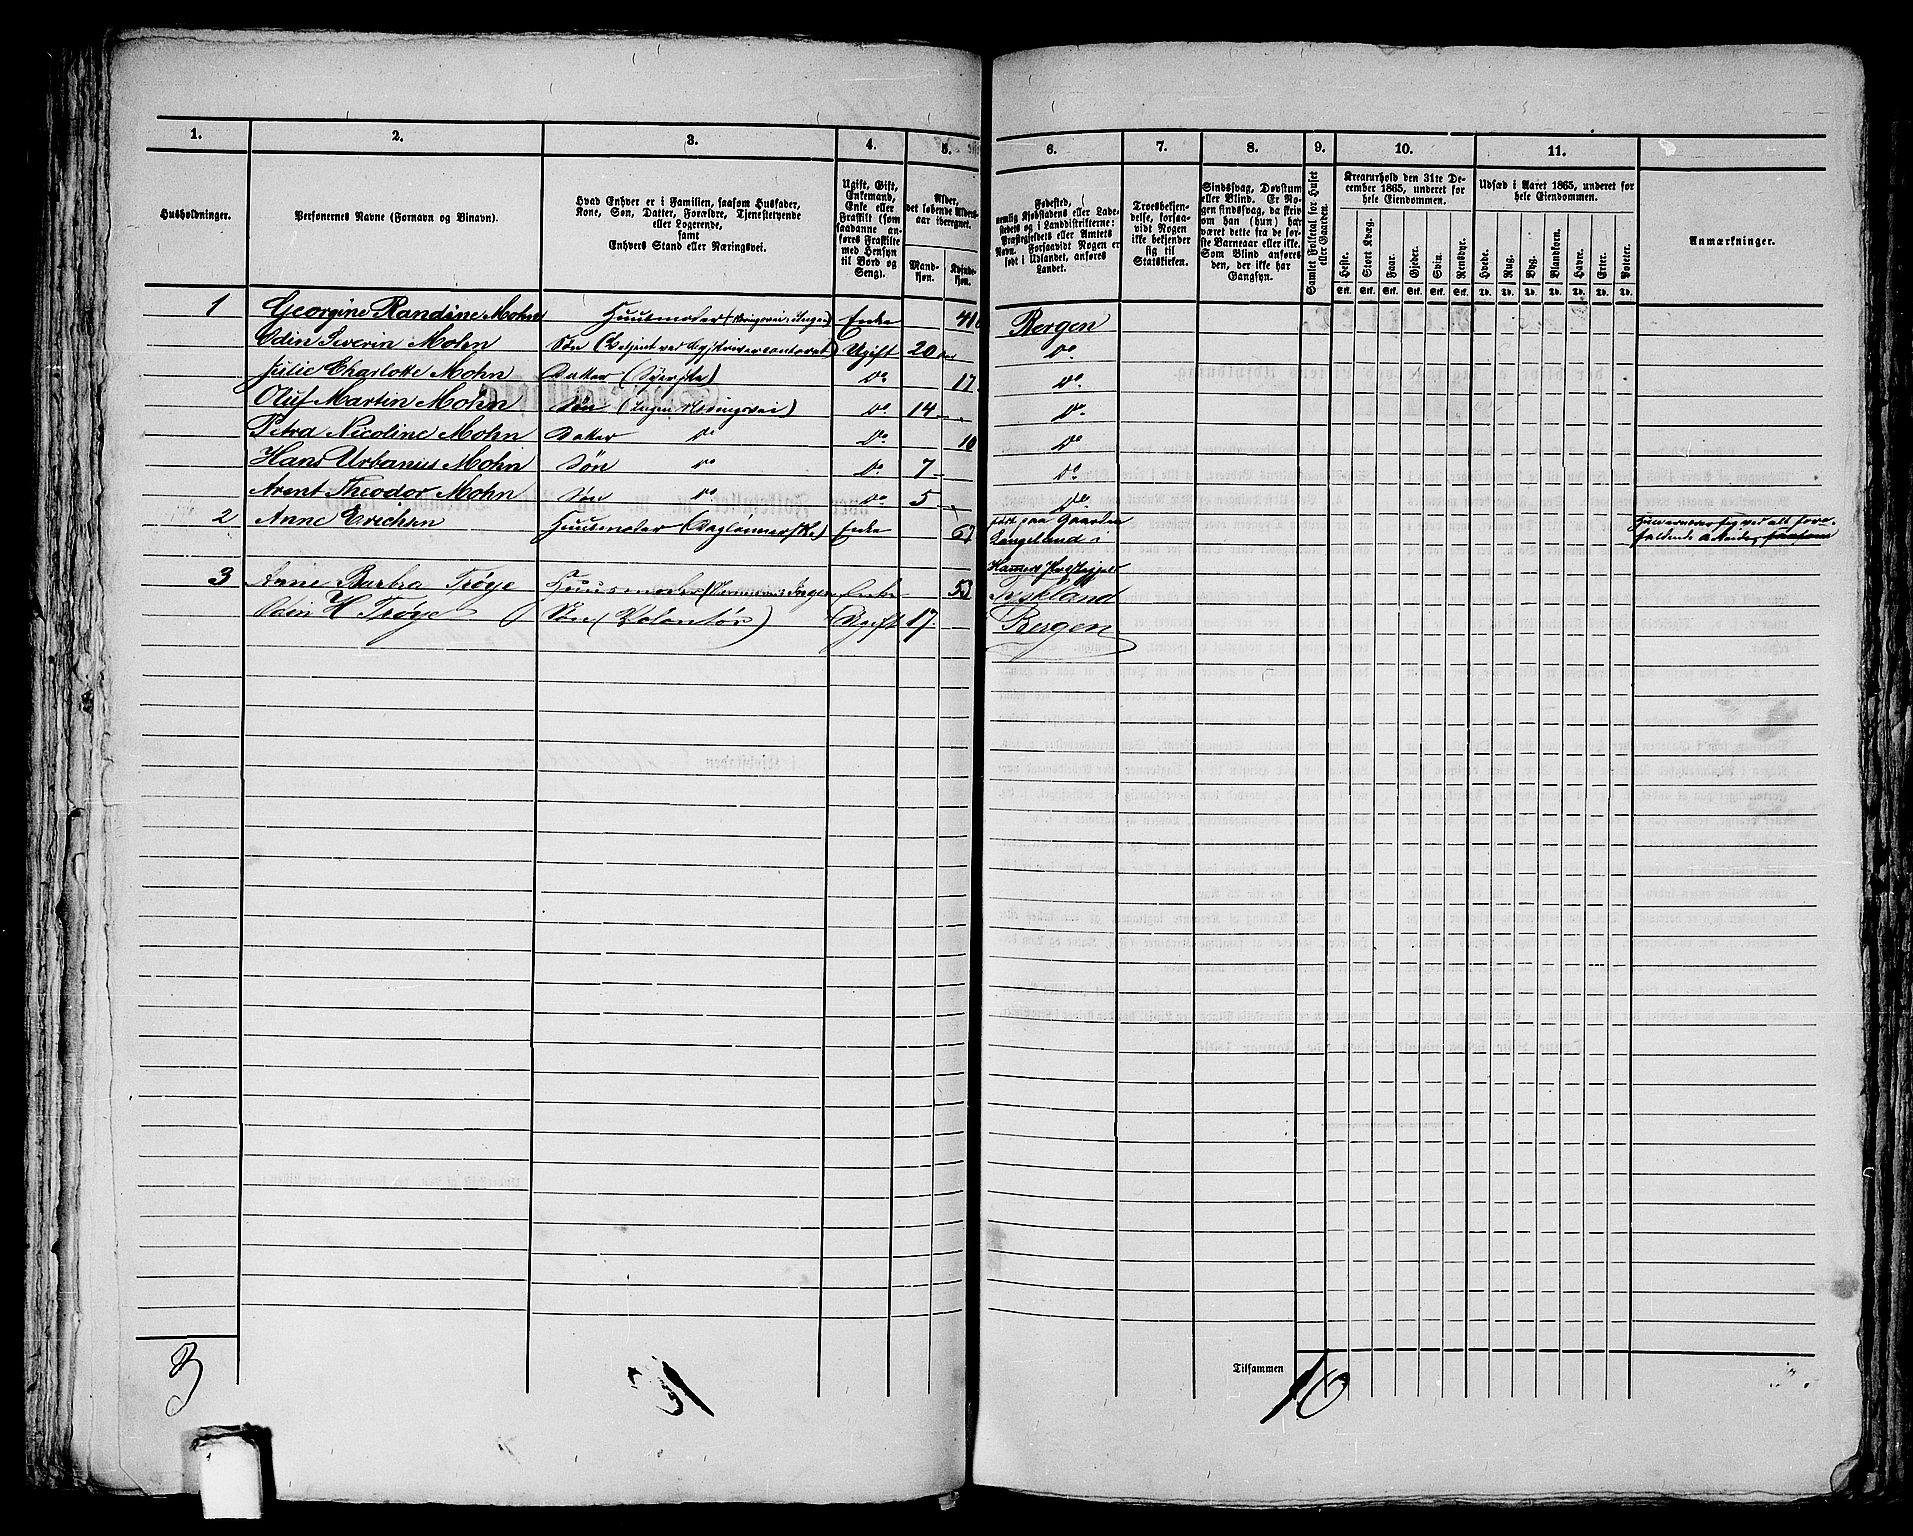 1. 2. 3. 4. 5. 6. 7. 8. 9. 10. 11.
Husholdninger.
Personernes Navne (Fornavn og Binavn).
Hvad Enhver er i Familien, saasom Husfader,
Kone, Søn, Datter, Forældre, Tjenestetyende
eller Logerende,
samt
Enhvers Stand eller Næringsvei.
Ugift, Gift,
Enkemand,
Enke eller
Fraskilt (som
saadanne an-
føres Fraskilte
med Hensyn
til Bord og
Seng).
Alder,
det løbende Alders-
aar iberegnet.
Mand-
kjøn.
Kvinde-
kjøn.
Fødested,
nemlig Kjøbstadens eller Lade-
stedets og i Landdistrikterne:
Præstegjeldets eller Amtets
Navn. Forsaavidt Nogen er
født i Udlandet, anføres
Landet.
Troesbekjen-
delse, forsaa-
vidt Nogen ikke
bekjender
sig til
Statskirken.
Sindssvag, Døvstum
eller Blind. Er No-
gen sindssvag, da skri-
ves om han (hun) har
været dette fra de før-
ste Barneaar eller ikke.
Som Blind anføres
den, der ikke har
Gangsyn.
Samlet Folketal for Huset
eller Gaarden.
Kreaturhold den 31te De-
cember 1865, underet for
hele Eiendommen.
Heste. Stort Kvæg. Faar. Gjeder. Svin. Rensdyr.
Stk. Stk. Stk. Stk. Stk. Stk.
Udsæd i Aaret 1865, underet for
hele Eiendommen.
Hvede. Rug. Byg. Blandkorn. Havre. Erter. Poteter.
Td. Td. Td. Td. Td. Td. Td.
Anmærkninger.
1 Georgine Randine Mohn Huusmoder (Næringsvei: Ingen) Enke 41 Bergen
Odin Severin Mohn Søn (Betjent ved Byskrivercontoret) Ugift 20 Do
Julie Charlotte Mohn Datter (Syerske) Do 17 Do
Oluf Martin Mohn Søn (Ingen Næringsvei) Do 14 Do
Petra Nicoline Mohn Datter Do Do 10 Do
Hans Urbanus Mohn Søn Do Do 7 Do
Arent Theodor Mohn Søn Do Do 5 Do
2 Anne Erichsen Huusmoder (Dagleierske) Enke født paa Gaarden
Langeland i
3 Anne Barbra Trøye Huusmoder Enke 53 Tyskland
Trøye Søn (Volontør) Ugift 17 Bergen
Tilsammen
3 10